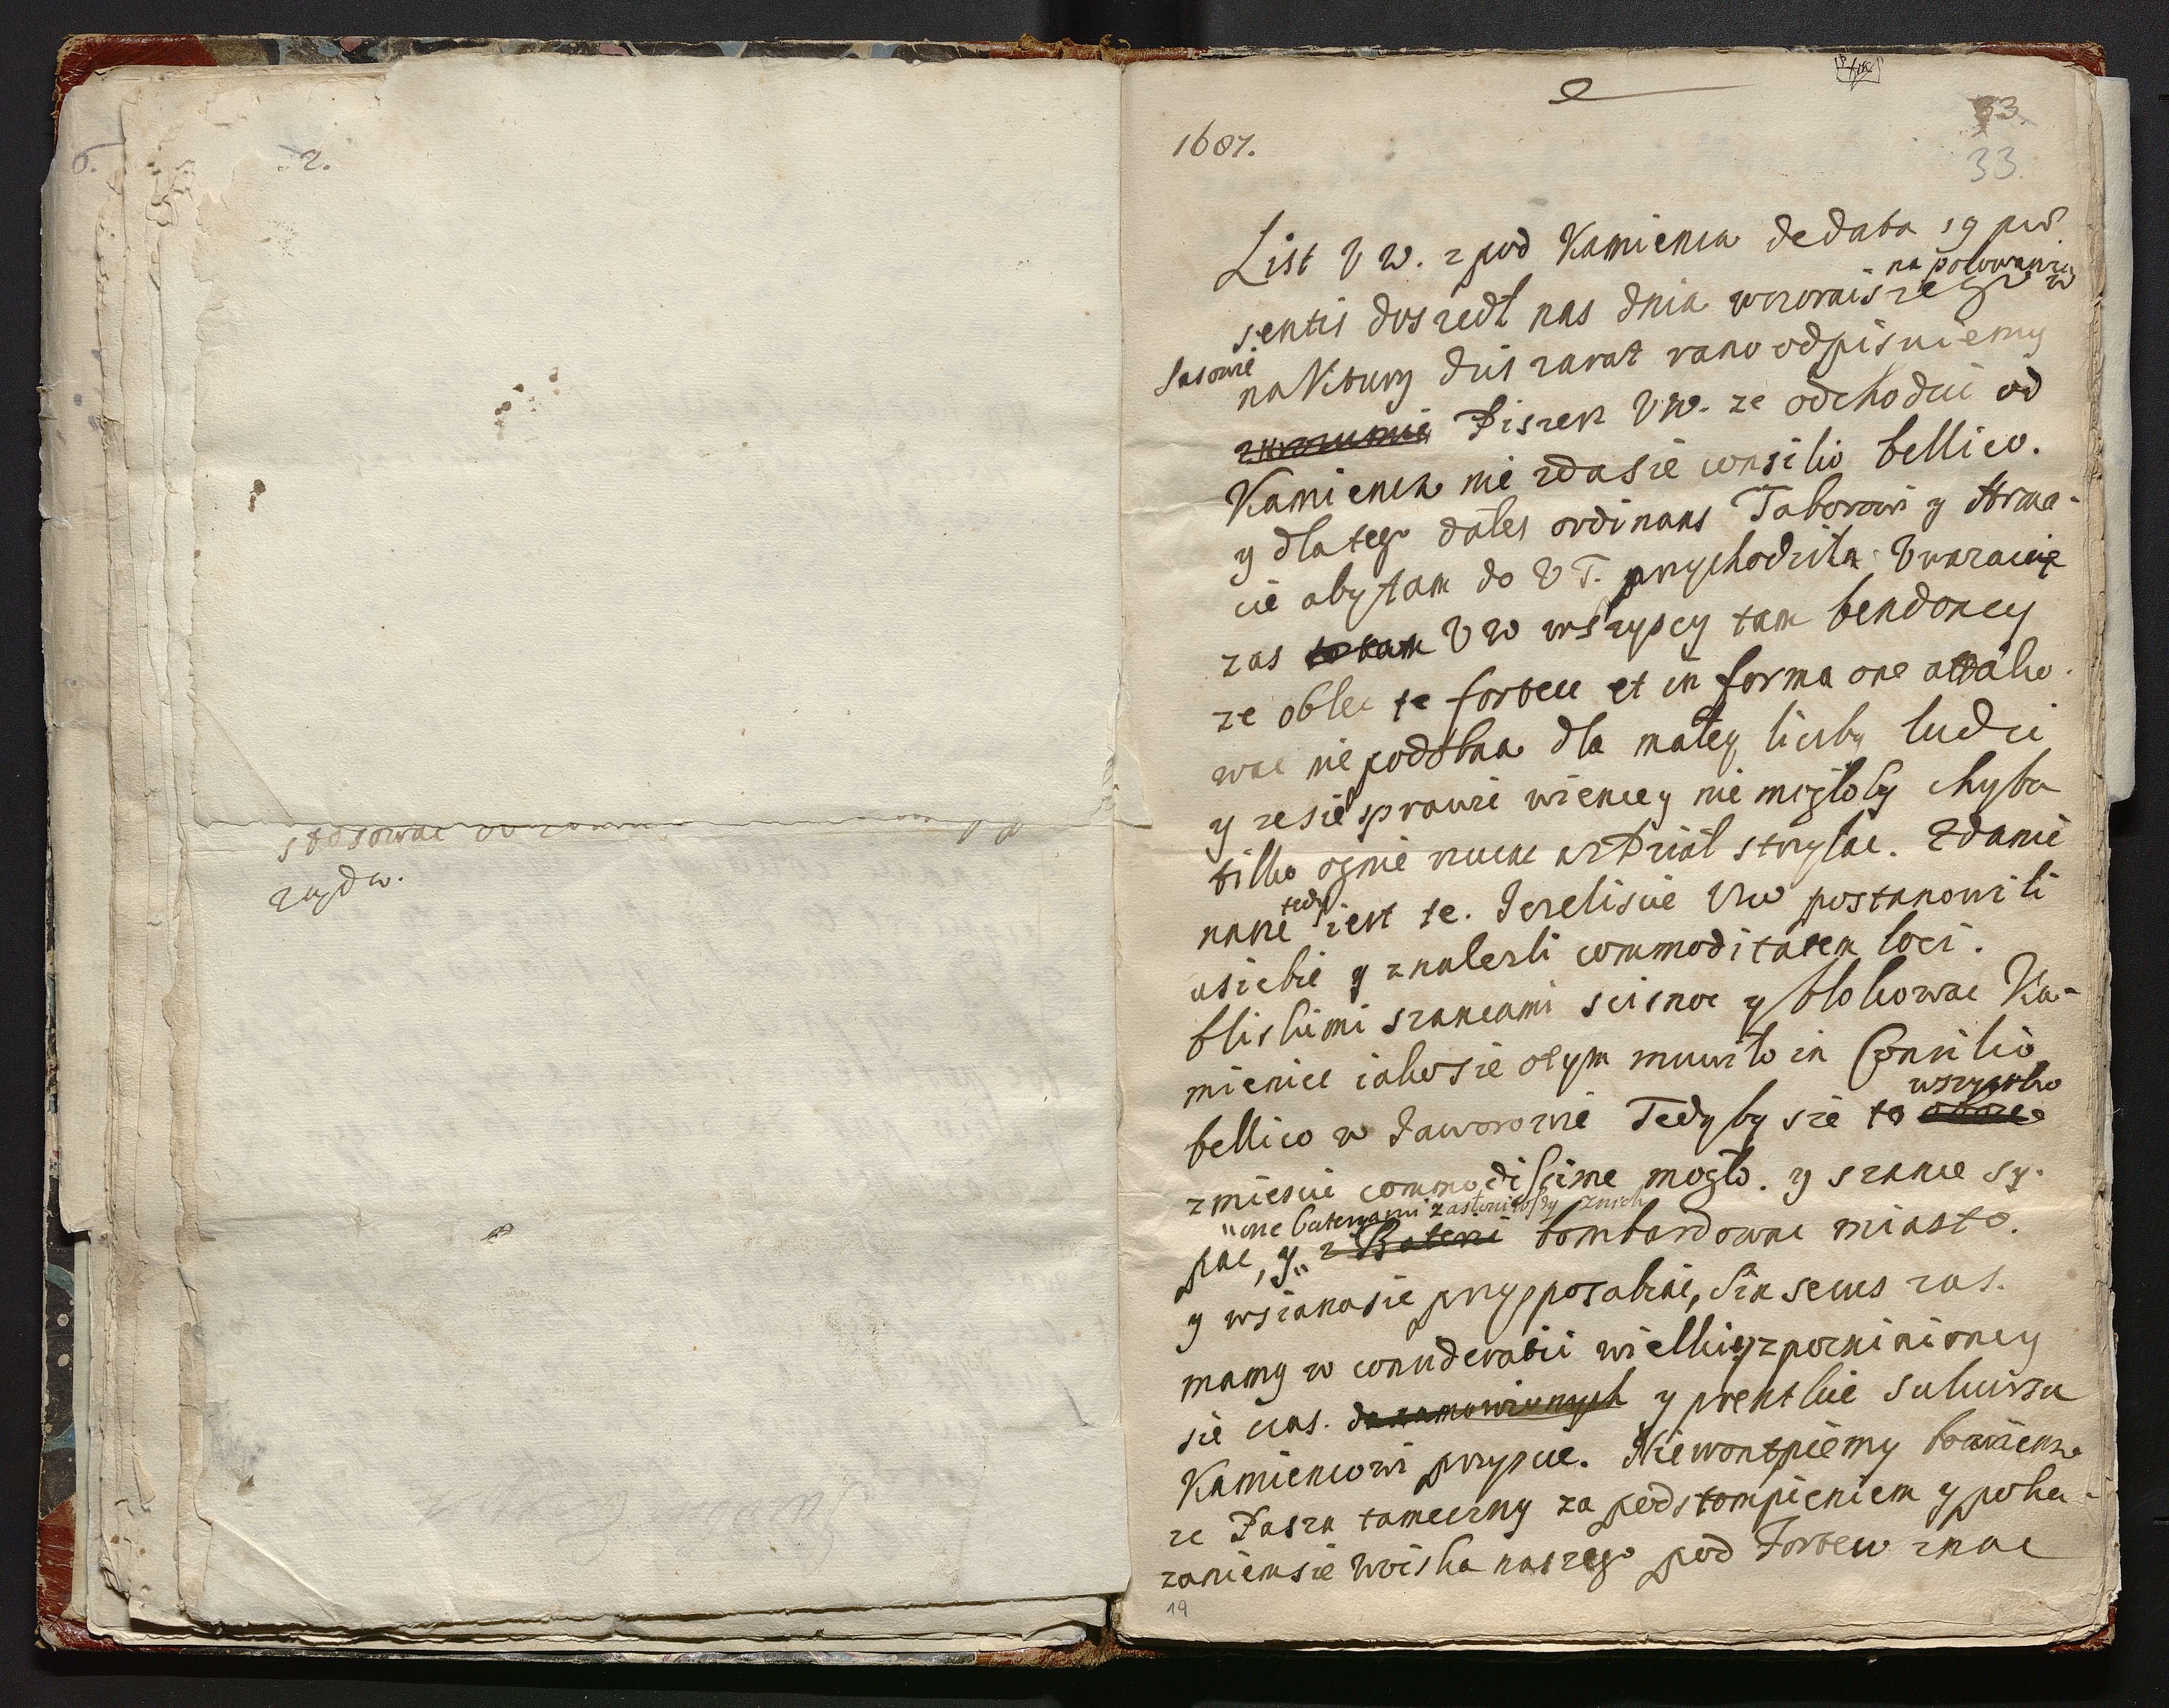 6.
2.
stosowac
rzydw.
33.
33.
1687.
List V W. zpod Kamienca dedata 19 pre
sentis doszedl nas dnia wczoraiszego na polowaniu w
Sasowie
naktury dis zaraz rano odpisuiemy
Piszesz V W. ze odchodzic od
Kamienca nie zdasie consilio bellico.
y dla tego dales ordinans Taborowi y Arma-
cie aby tam do V T. przychodzila. Vwazacie
zas V W wszyscy tam bendoncy
ze oblec te fortece et in forma one attako-
wac nie podobna dla maley liczby ludzi
y zesie sprawic wiencey nie mogloby chyba
tilko ognie rzucac z Dzial strzylac. Zdanie
nasze tedy iest te. Jezeliscie V W postanowili
usiebie y znalezli commoditatem loci.
bliskimi szancami scisnoc y blokowac Ka-
mieniec iakosie otym muwilo in Consilio
bellico w Jaworowie Tedyby sie to wszystko
zmiescic commodissime moglo. y szance sy-
one bateryami zaslonic y z nich
pac, y z Baterii bombardowac miasto.
y wsianasie przysposabiac, Sin secus zas.
mamy w consideratii wielkiey zpoznionney
sie czas. y prentkie sukursu
Kamiencowi przyscie. Niewontpiemy bowiem
ze Pasza tameczny za podstompieniem y poka-
zaniemsie woiska naszego pod Fortece znac
19